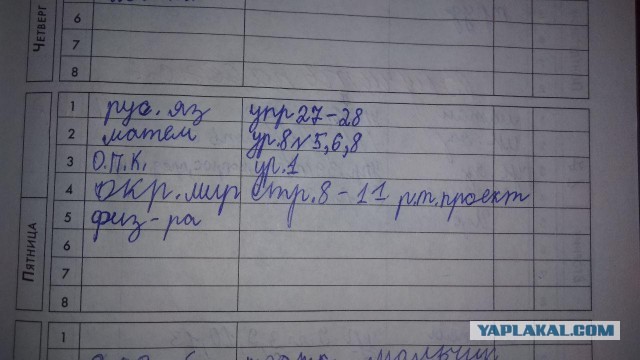 ЧЕТВЕРГ
6
7
8
1 рус. яз упр 27-28
2 матем ур.8 №5,6,8
3 О.П.К. ур.1
4 окр. мир стр.8-11 р.т. проект
5 физ-ра
6
7
8
ПЯТНИЦА
1
YAPLAKAL.COM